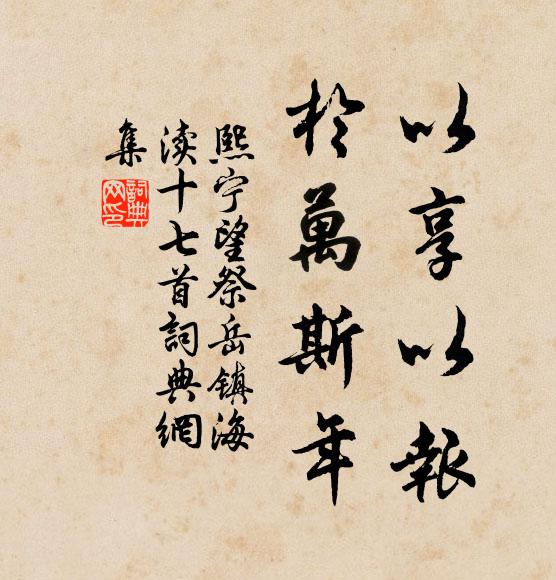 以享以報
於萬斯年
熙宁望祭岳镇海
渎十七首詞典網
集
詞典网印